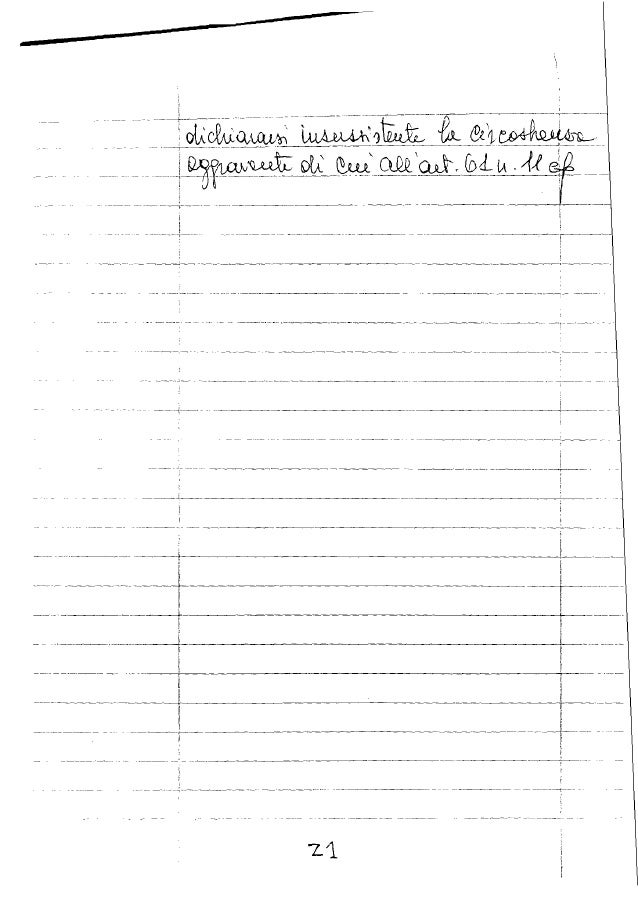 dichiararsi insussistente la circostanza
aggravante di cui all'art. 61 n. 11 cp
21